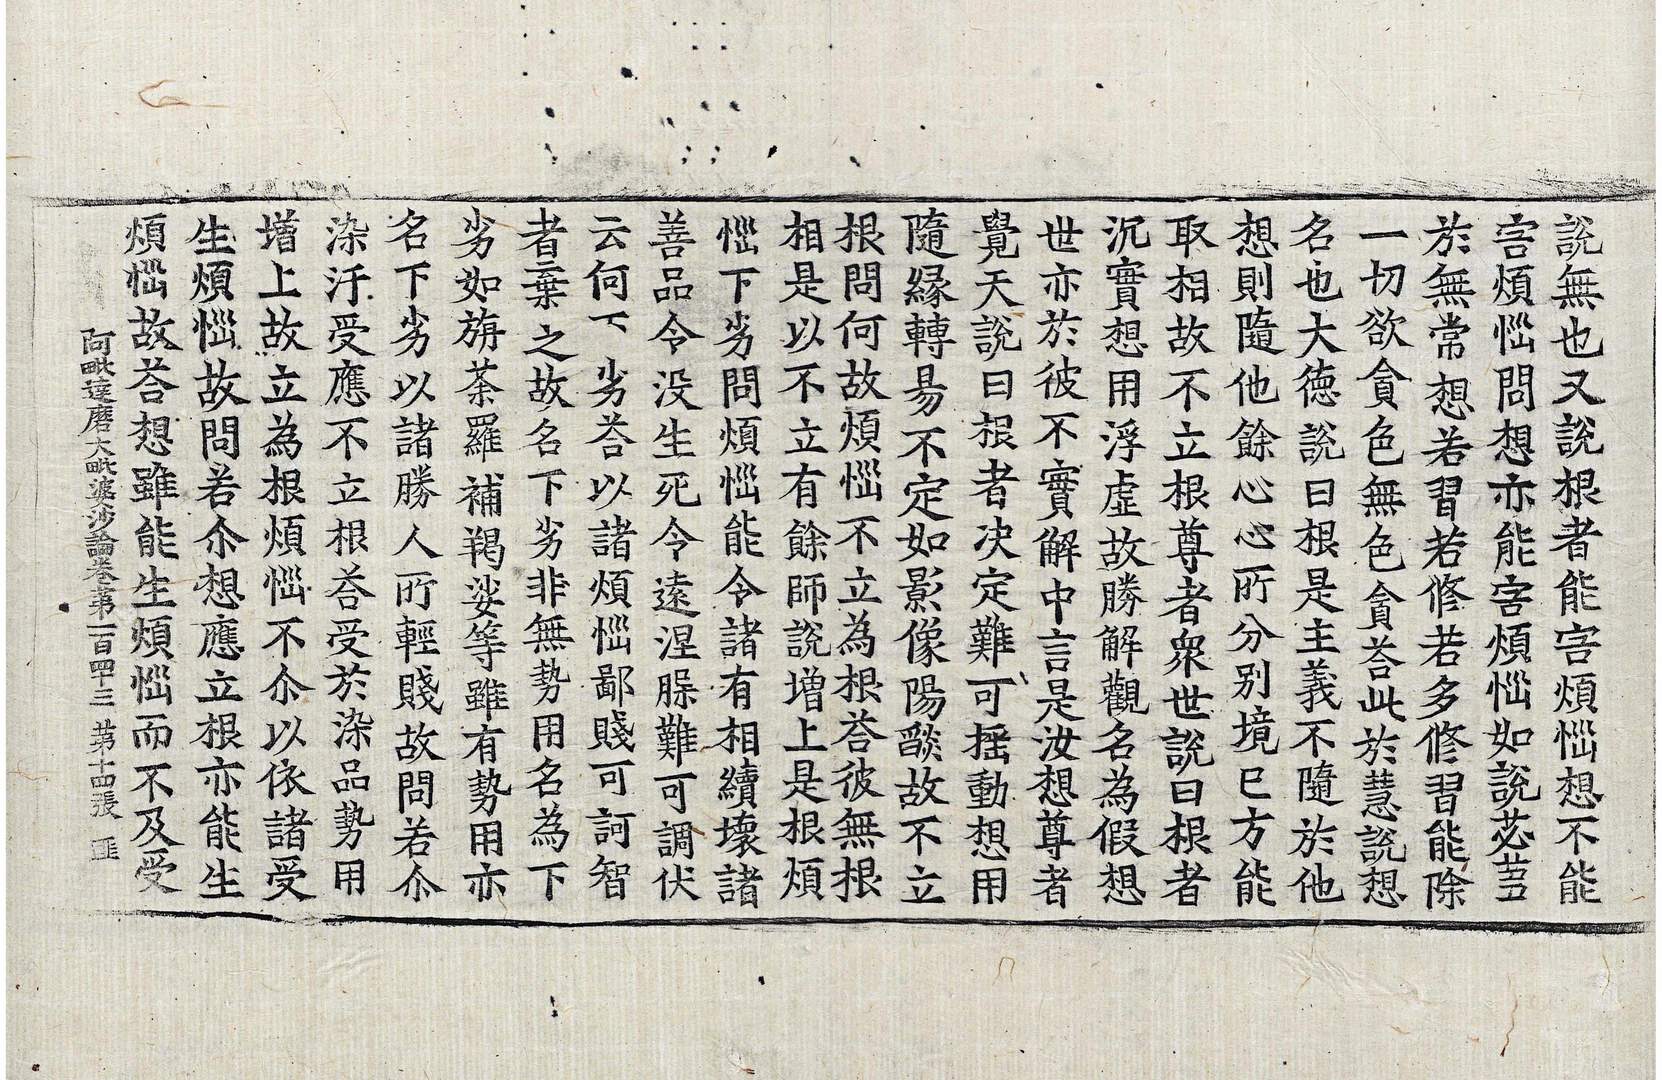 說無也又說根者能害煩惱想不能
害煩惱問想亦能害煩惱如說苾芻
於無常想若習若修若多修習能除
一切欲貪色無色貪荅此於慧說想
名也大德說曰根是主義不隨於他
想則隨他餘心心所分别境已方能
取相故不立根尊者衆世說曰根者
沉實想用浮虛故勝解觀名為假想
世亦於彼不實解中言是汝想尊者
覺天說曰根者决定難可搖動想用
隨緣轉易不定如影像陽燄故不立
根問何故煩惱不立為根荅彼無根
相是以不立有餘師說增上是根煩
惱下劣問煩惱能令諸有相續壞諸
善品令没生死令遠涅槃難可調伏
云何下劣荅以諸煩惱鄙賤可訶智
者棄之故名下劣非無勢用名為下
劣如旃荼羅補羯娑等雖有勢用亦
名下劣以諸勝人所輕賤故問若尒
染汙受應不立根荅受於染品勢用
增上故立為根煩惱不尒以依諸受
生煩惱故問若尒想應立根亦能生
煩惱故荅想雖能生煩惱而不及受
阿毗達磨大毗婆沙論卷第一百四十三 第十四張 匪